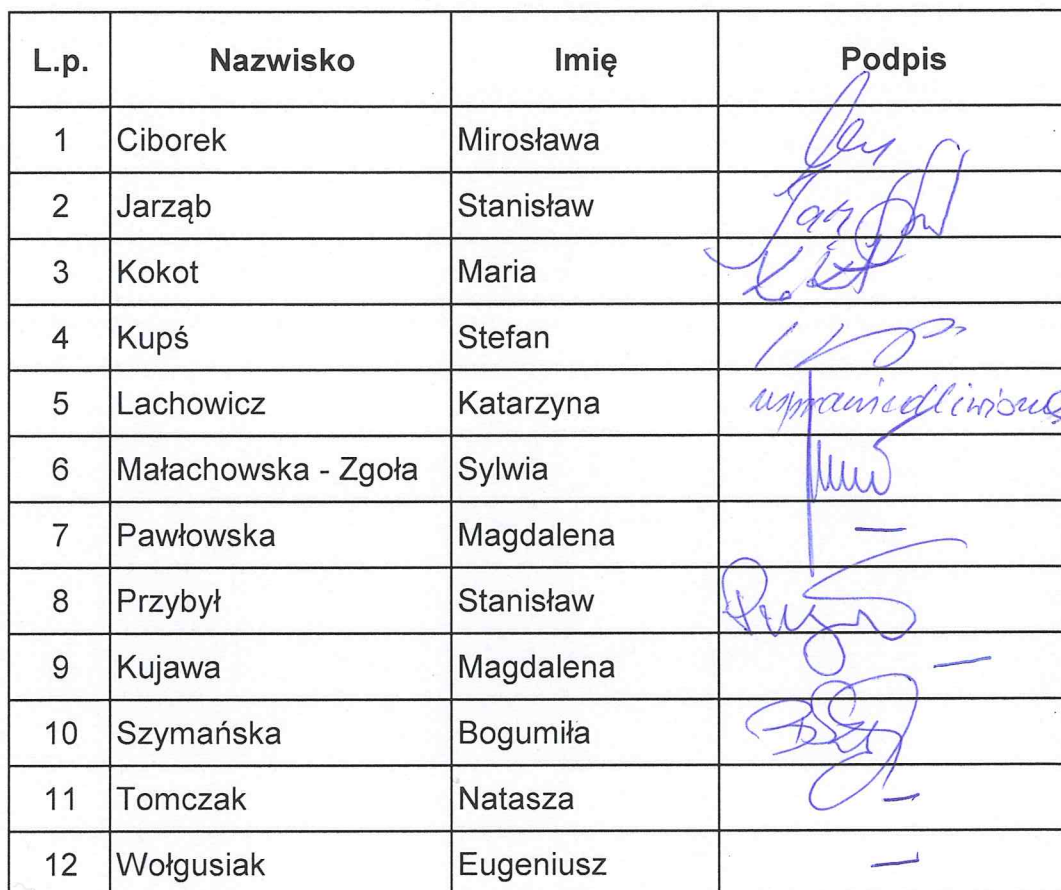 L.p. Nazwisko Imię Podpis
1 Ciborek Mirosława
2 Jarząb Stanisław
3 Kokot Maria
4 Kupś Stefan
5 Lachowicz Katarzyna usprawiedliwiona
6 Małachowska - Zgoła Sylwia
7 Pawłowska Magdalena —
8 Przybył Stanisław
9 Kujawa Magdalena —
10 Szymańska Bogumiła
11 Tomczak Natasza —
12 Wołgusiak Eugeniusz —